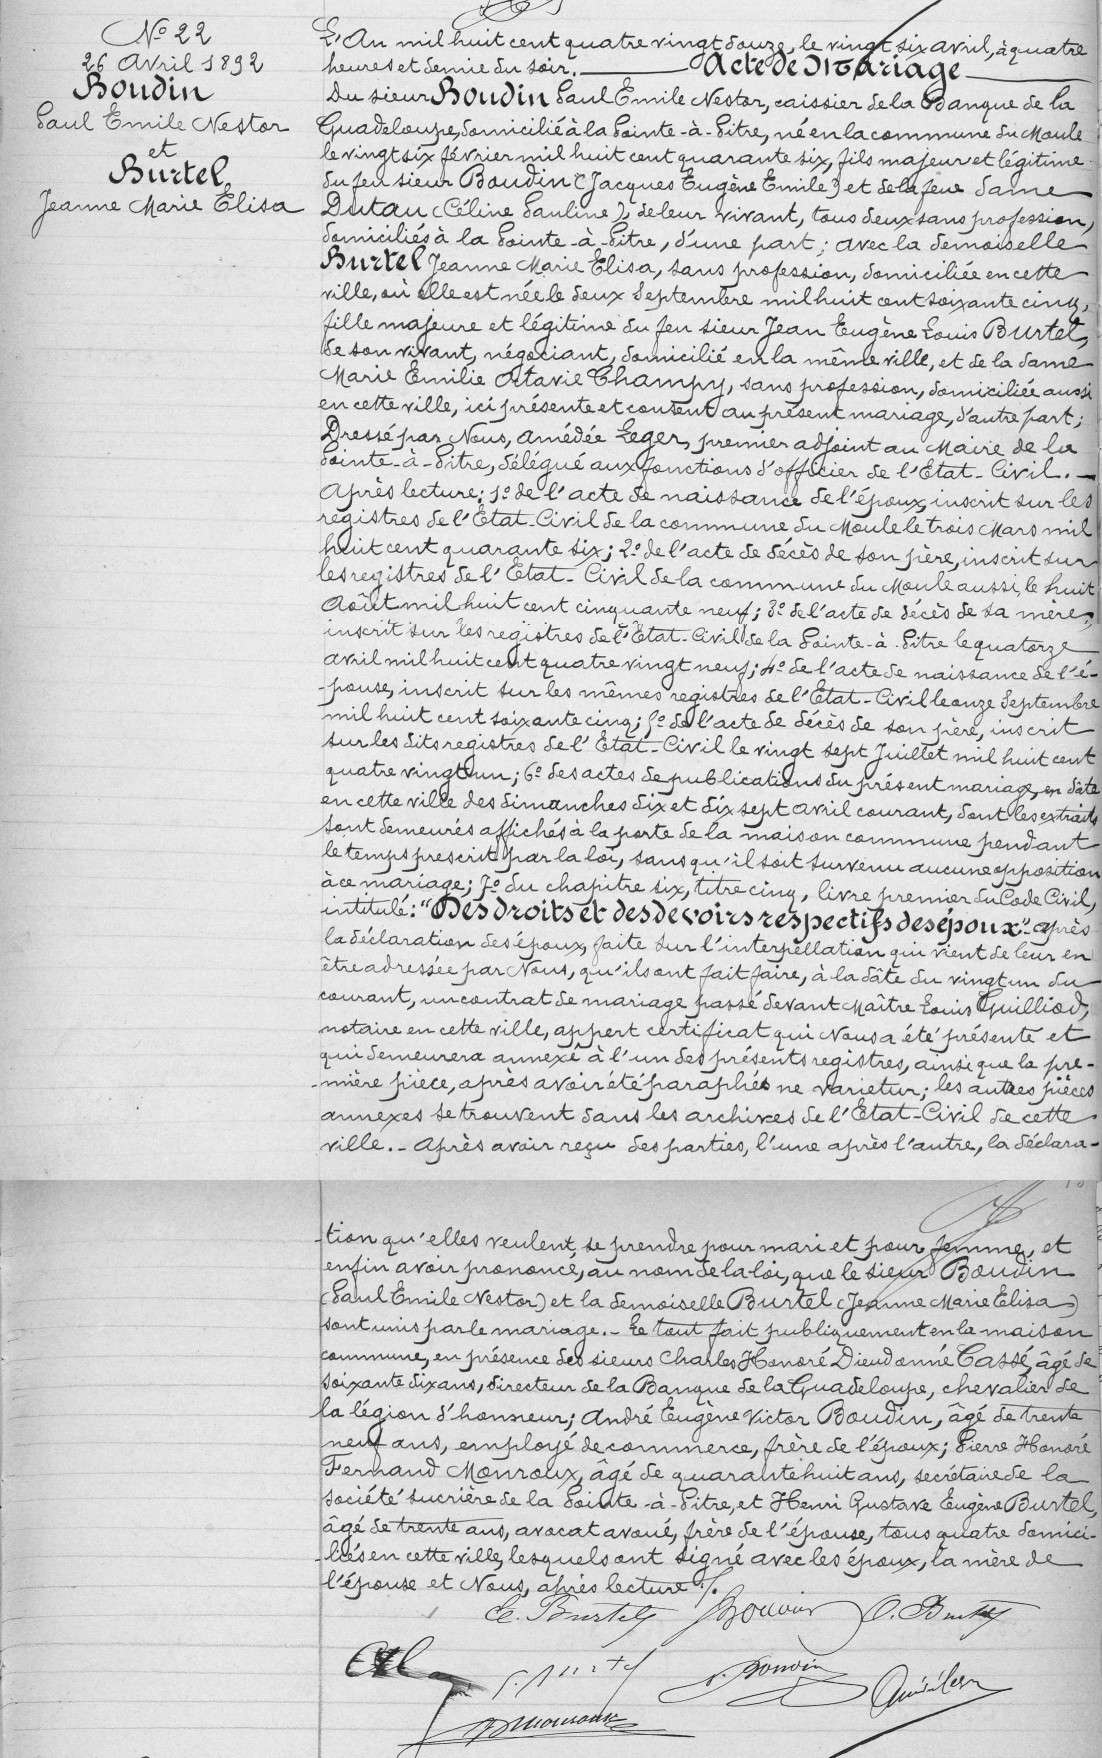 Nº 22
26 Avril 1892
Boudin
Paul Emile Nestor
et
Burtel
Jeanne Marie Elisa
L'An mil huit cent quatre vingt douze, le vingt six avril, à quatre
heures et demie du soir. Acte de Mariage
Du sieur Boudin Paul Emile Nestor, caissier de la Banque de la
Guadeloupe, domicilié à la Pointe-à-Pitre, né en la commune du Moule
le vingt six février mil huit cent quarante six, fils majeur et légitime
du feu sieur Boudin (Jacques Eugène Emile) et de la feue dame
Dutau (Céline Pauline), de leur vivant, tous deux sans profession,
domiciliés à la Pointe-à-Pitre, d'une part; avec la demoiselle
Burtel Jeanne Marie Elisa, sans profession, domiciliée en cette
ville, où elle est née le deux Septembre mil huit cent soixante cinq,
fille majeure et légitime du feu sieur Jean Eugène Louis Burtel,
de son vivant, négociant, domicilié en la même ville, et de la dame
Marie Emilie Octavie Champy, sans profession, domiciliée aussi
en cette ville, ici présente et consent au présent mariage, d'autre part;
Dressé par Nous, Amédée Leger, premier adjoint au Maire de la
Pointe-à-Pitre, délégué aux fonctions d'officier de l'Etat-Civil. —
Après lecture: 1º de l'acte de naissance de l'époux, inscrit sur les
régistres de l'Etat-Civil de la commune du Moule le trois Mars mil
huit cent quarante six; 2º de l'acte de décès de son père, inscrit sur
les registres de l'Etat-Civil de la commune du Moule aussi, le huit
Août mil huit cent cinquante neuf; 3º de l'acte de décès de sa mère,
inscrit sur les registres de l'Etat-Civil de la Pointe-à-Pitre le quatorze
avril mil huit cent quatre vingt neuf; 4º de l'acte de naissance de l'é-
-pouse, inscrit sur les mêmes registres de l'Etat-Civil le onze Septembre
mil huit cent soixante cinq; 5º de l'acte de décès de son père, inscrit
sur les dits registres de l'Etat-Civil le vingt sept Juillet mil huit cent
quatre vingt un; 6º des actes de publications du présent mariage, en date
en cette ville des dimanches dix et dix sept avril courant, dont les extraits
sont demeurés affichés à la porte de la maison commune pendant
le temps prescrit par la loi, sans qu'il soit survenu aucune opposition
à ce mariage; 7º du chapitre six, titre cinq, livre premier du Code Civil,
intitulé: "Des droits et des devoirs respectifs des époux". après
la déclaration des époux, faite sur l'interpellation qui vient de leur en
être adressée par Nous, qu'ils ont fait faire, à la dâte du vingt un du
courant, un contrat de mariage passé devant Maître Louis Guilliod,
notaire en cette ville, appert certificat qui Nous a été présenté et
qui demeurera annexé à l'un des présents registres, ainsi que la pre-
-mière pièce, après avoir été paraphés ne varietur; les autres pièces
annexes se trouvent dans les archives de l'Etat-Civil de cette
ville. - Après avoir reçu des parties, l'une après l'autre, la déclara-
-tion qu'elles veulent se prendre pour mari et pour femme, et
enfin avoir prononcé, au nom de la loi, que le sieur Boudin
(Paul Emile Nestor) et la demoiselle Burtel (Jeanne Marie Elisa)
sont unis par le mariage. - Le tout fait publiquement en la maison
commune, en présence des sieurs Charles Honoré Dieudonné Cassé, âgé de
soixante dix ans, directeur de la Banque de la Guadeloupe, chevalier de
la légion d'honneur; André Eugène Victor Boudin, âgé de trente
neuf ans, employé de commerce, frère de l'époux; Pierre Honoré
Fernand Monroux, âgé de quarante huit ans, secrétaire de la
société sucrière de la Pointe-à-Pitre, et Henri Gustave Eugène Burtel,
âgé de trente ans, avocat avoué, frère de l'épouse, tous quatre domici-
-liés en cette ville, lesquels ont signé avec les époux, la mère de
l'épouse et Nous, après lecture ./.
E. Burtel Boudin O. Burtel